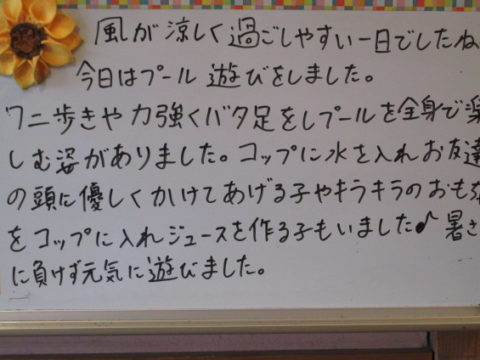 風が涼しく過ごしやすい一日でしたね
今日はプール遊びをしました。
ワニ歩きや力強くバタ足をしプールを全身で楽
しむ姿がありました。コップに水を入れお友達
の頭に優しくかけてあげる子やキラキラのおもちゃ
をコップに入れジュースを作る子もいました♪暑さ
に負けず元気に遊びました。